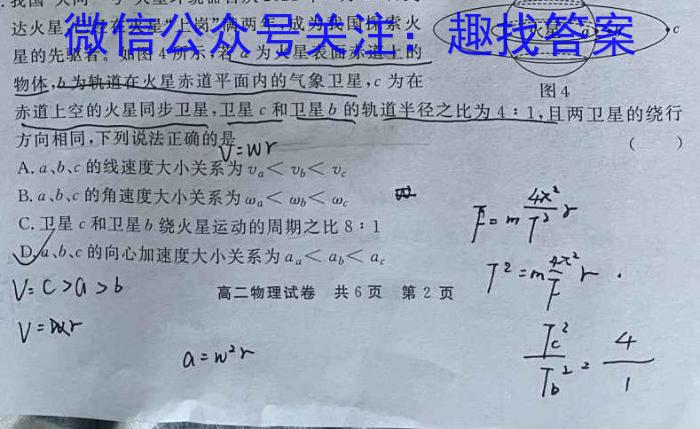 达火星
满两年,成为我国探索火
微信公众号关注:趣找答案
星的先驱者。如图4所示,若a为火星表面赤道上的
火星
a
c
物体,b为轨道在火星赤道平面内的气象卫星,c为在
图4
赤道上空的火星同步卫星,卫星c和卫星b的轨道半径之比为4:1,且两卫星的绕行
方向相同,下列说法正确的是 ( )
V=wr
A.a、b、c的线速度大小关系为vₐ<v_b<v_c
B.a、b、c的角速度大小关系为ωₐ<ω_b<ω_c
C.卫星c和卫星b绕火星运动的周期之比8:1
D.a、b、c的向心加速度大小关系为aₐ<a_b<a_c
F=m 4π²/T² r
V=c>a>b
高二物理试卷 共6页 第2页
T²=m 4π²/F r .
V=wr
a=w²r
Tc²/Tb² = 4/1